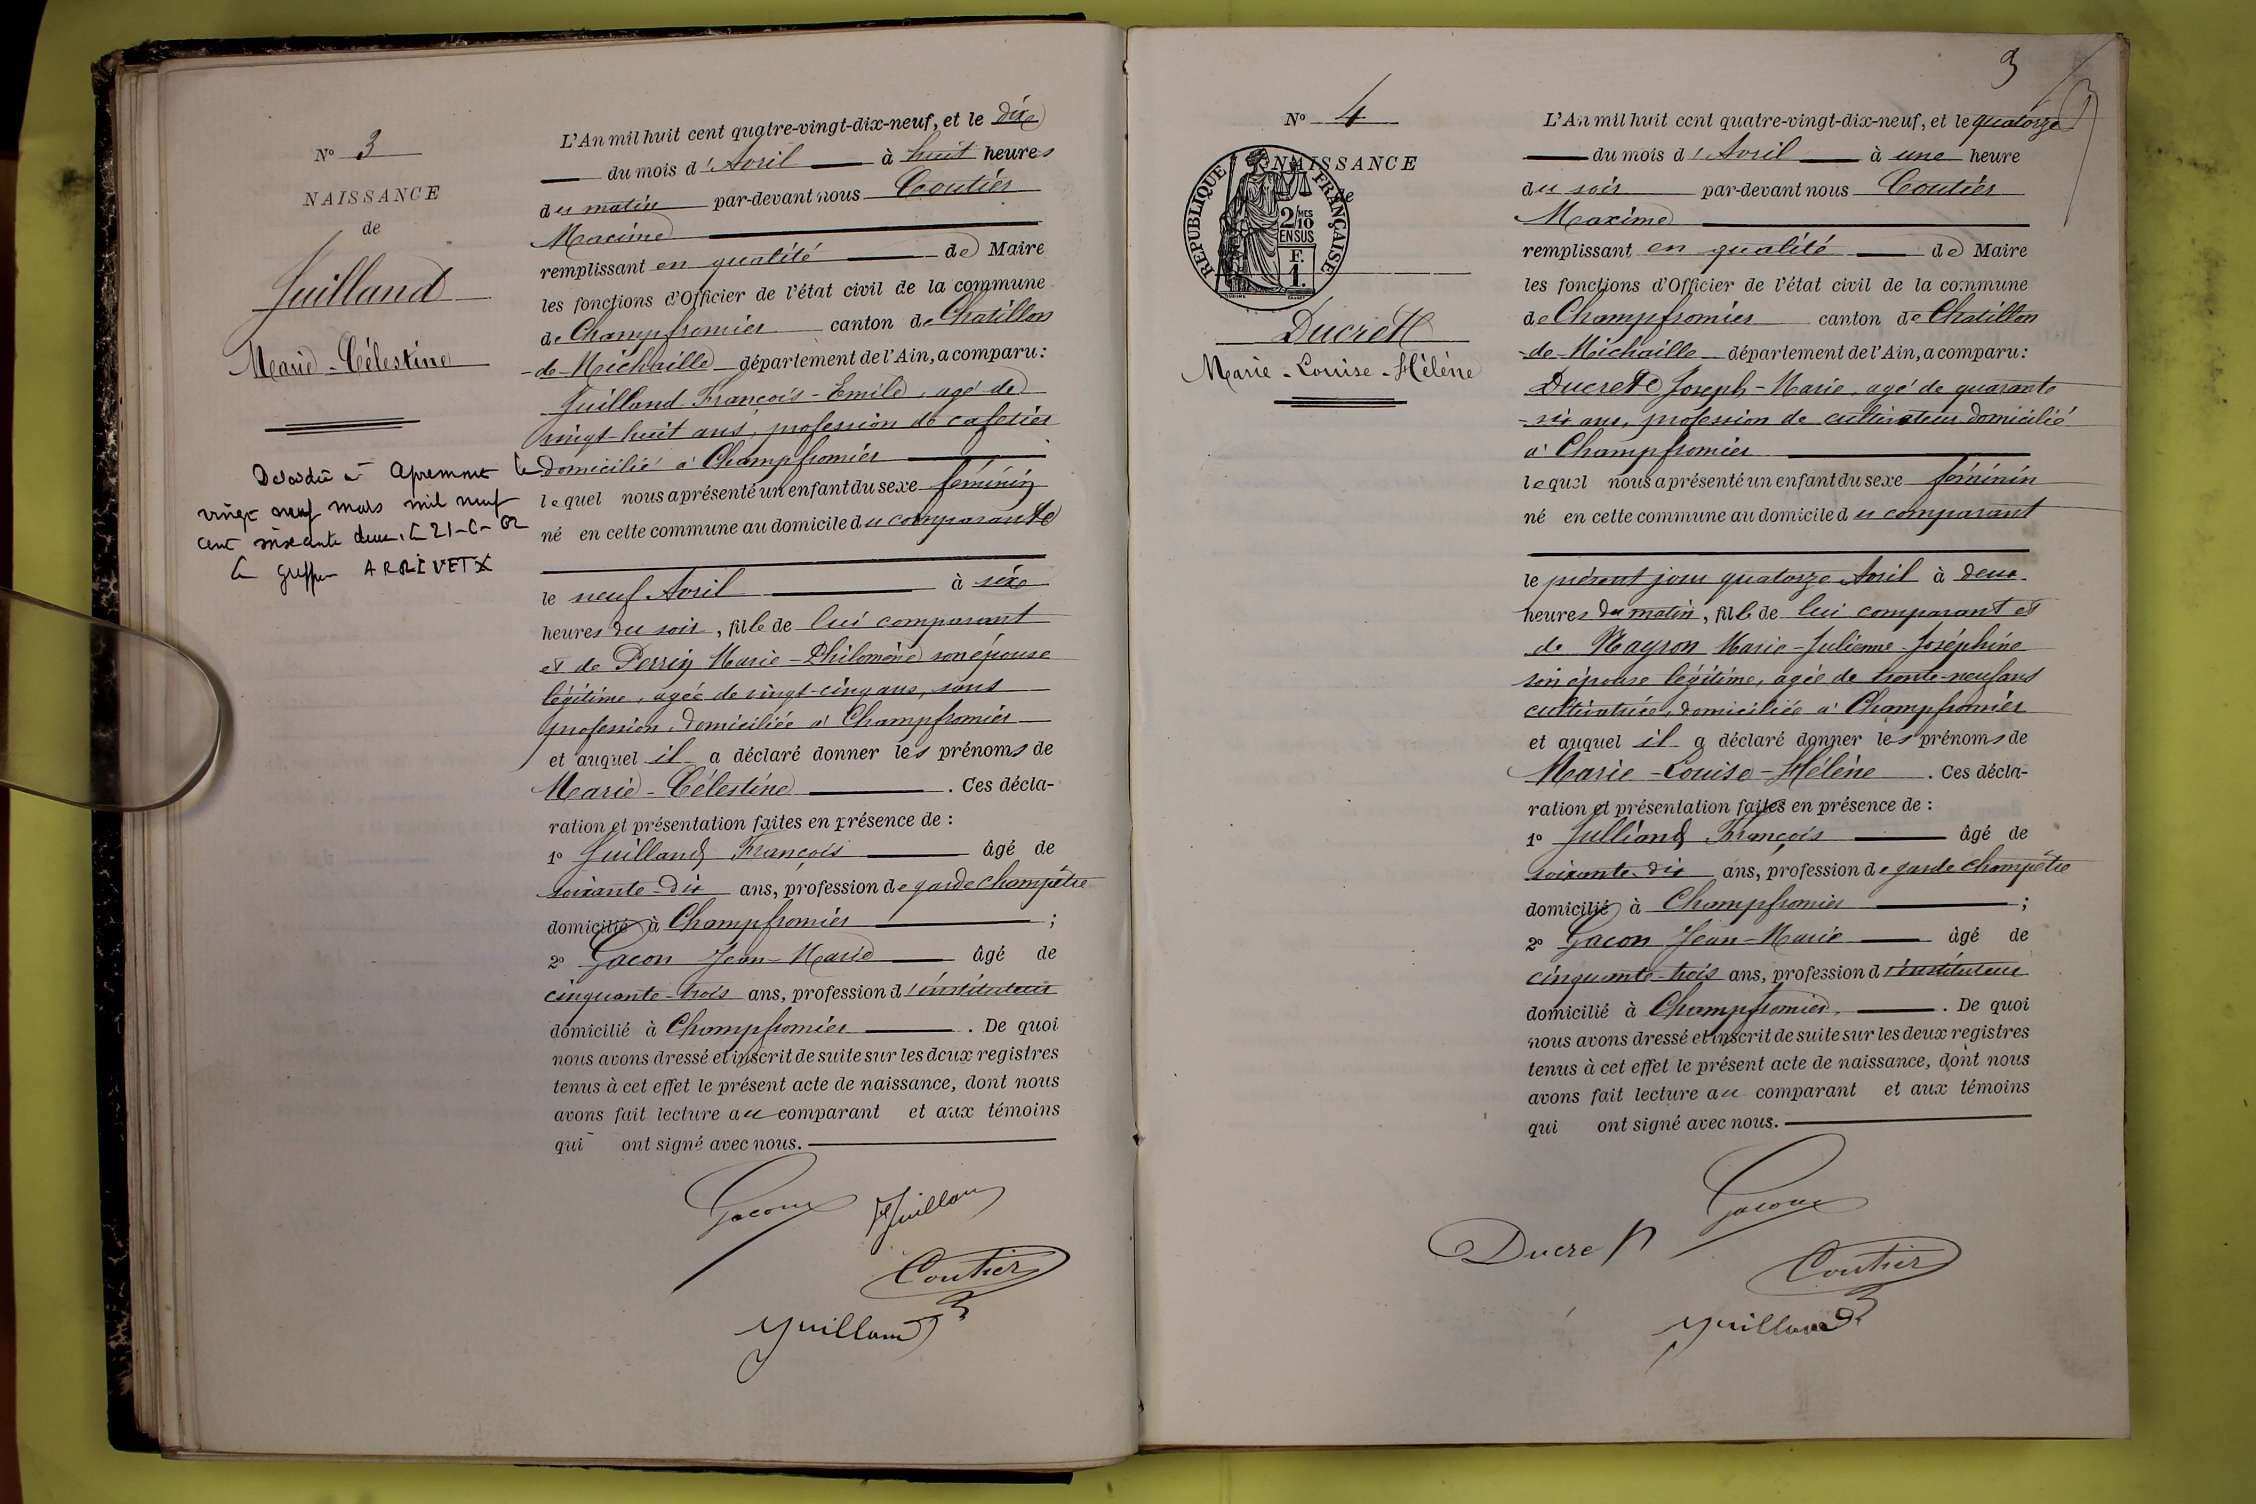 N° 3
NAISSANCE
de
Juilland
Marie-Célestine
Décédée à Apremont le
vingt neuf mars mil neuf
cent soixante deux.
Le greffier ARRIVETX
L'An mil huit cent quatre-vingt-dix-neuf, et le dix
du mois d'Avril à huit heures
du matin par-devant nous Coutier
Maxime
remplissant en qualité de Maire
les fonctions d'Officier de l'état civil de la commune
de Champfromier canton de Chatillon
-de-Michaille département de l'Ain, a comparu :
Juilland François-Emile, agé de
vingt-huit ans, profession de cafetier
domicilié à Champfromier
lequel nous a présenté un enfant du sexe féminin
né en cette commune au domicile du comparant
le neuf Avril à six
heures du soir, fille de lui comparant
et de Perrin Marie-Philomène son épouse
légitime, agée de vingt-cinq ans, sans
profession, domiciliée à Champfromier
et auquel il a déclaré donner les prénoms de
Marie-Célestine. Ces décla-
ration et présentation faites en présence de :
1° Juilland François âgé de
soixante-dix ans, profession de garde champêtre
domicilié à Champfromier ;
2° Gacon Jean-Marie âgé de
cinquante-trois ans, profession d'instituteur
domicilié à Champfromier. De quoi
nous avons dressé et inscrit de suite sur les deux registres
tenus à cet effet le présent acte de naissance, dont nous
avons fait lecture au comparant et aux témoins
qui ont signé avec nous.
Gacon Juilland
Coutier
Juilland
3
N° 4
NAISSANCE
de
RÉPUBLIQUE FRANÇAISE
2/10MES
EN SUS
F.
1.
Ducrett
Marie-Louise-Hélène
L'An mil huit cent quatre-vingt-dix-neuf, et le quatorze
du mois d'Avril à une heure
du soir par-devant nous Coutier
Maxime
remplissant en qualité de Maire
les fonctions d'Officier de l'état civil de la commune
de Champfromier canton de Chatillon
-de-Michaille département de l'Ain, a comparu :
Ducrett Joseph-Marie, agé de quarante
-six ans, profession de cultivateur domicilié
à Champfromier
lequel nous a présenté un enfant du sexe féminin
né en cette commune au domicile du comparant
le présent jour quatorze Avril à deux
heures du matin, fille de lui comparant et
de Mayson Marie-Julienne-Joséphine
son épouse légitime, agée de trente-neuf ans
cultivatrice, domiciliée à Champfromier
et auquel il a déclaré donner les prénoms de
Marie-Louise-Hélène. Ces décla-
ration et présentation faites en présence de :
1° Julliand François âgé de
soixante-dix ans, profession de garde champêtre
domicilié à Champfromier ;
2° Gacon Jean-Marie âgé de
cinquante-trois ans, profession d'instituteur
domicilié à Champfromier. De quoi
nous avons dressé et inscrit de suite sur les deux registres
tenus à cet effet le présent acte de naissance, dont nous
avons fait lecture au comparant et aux témoins
qui ont signé avec nous.
Gacon
Ducret
Coutier
Juilland